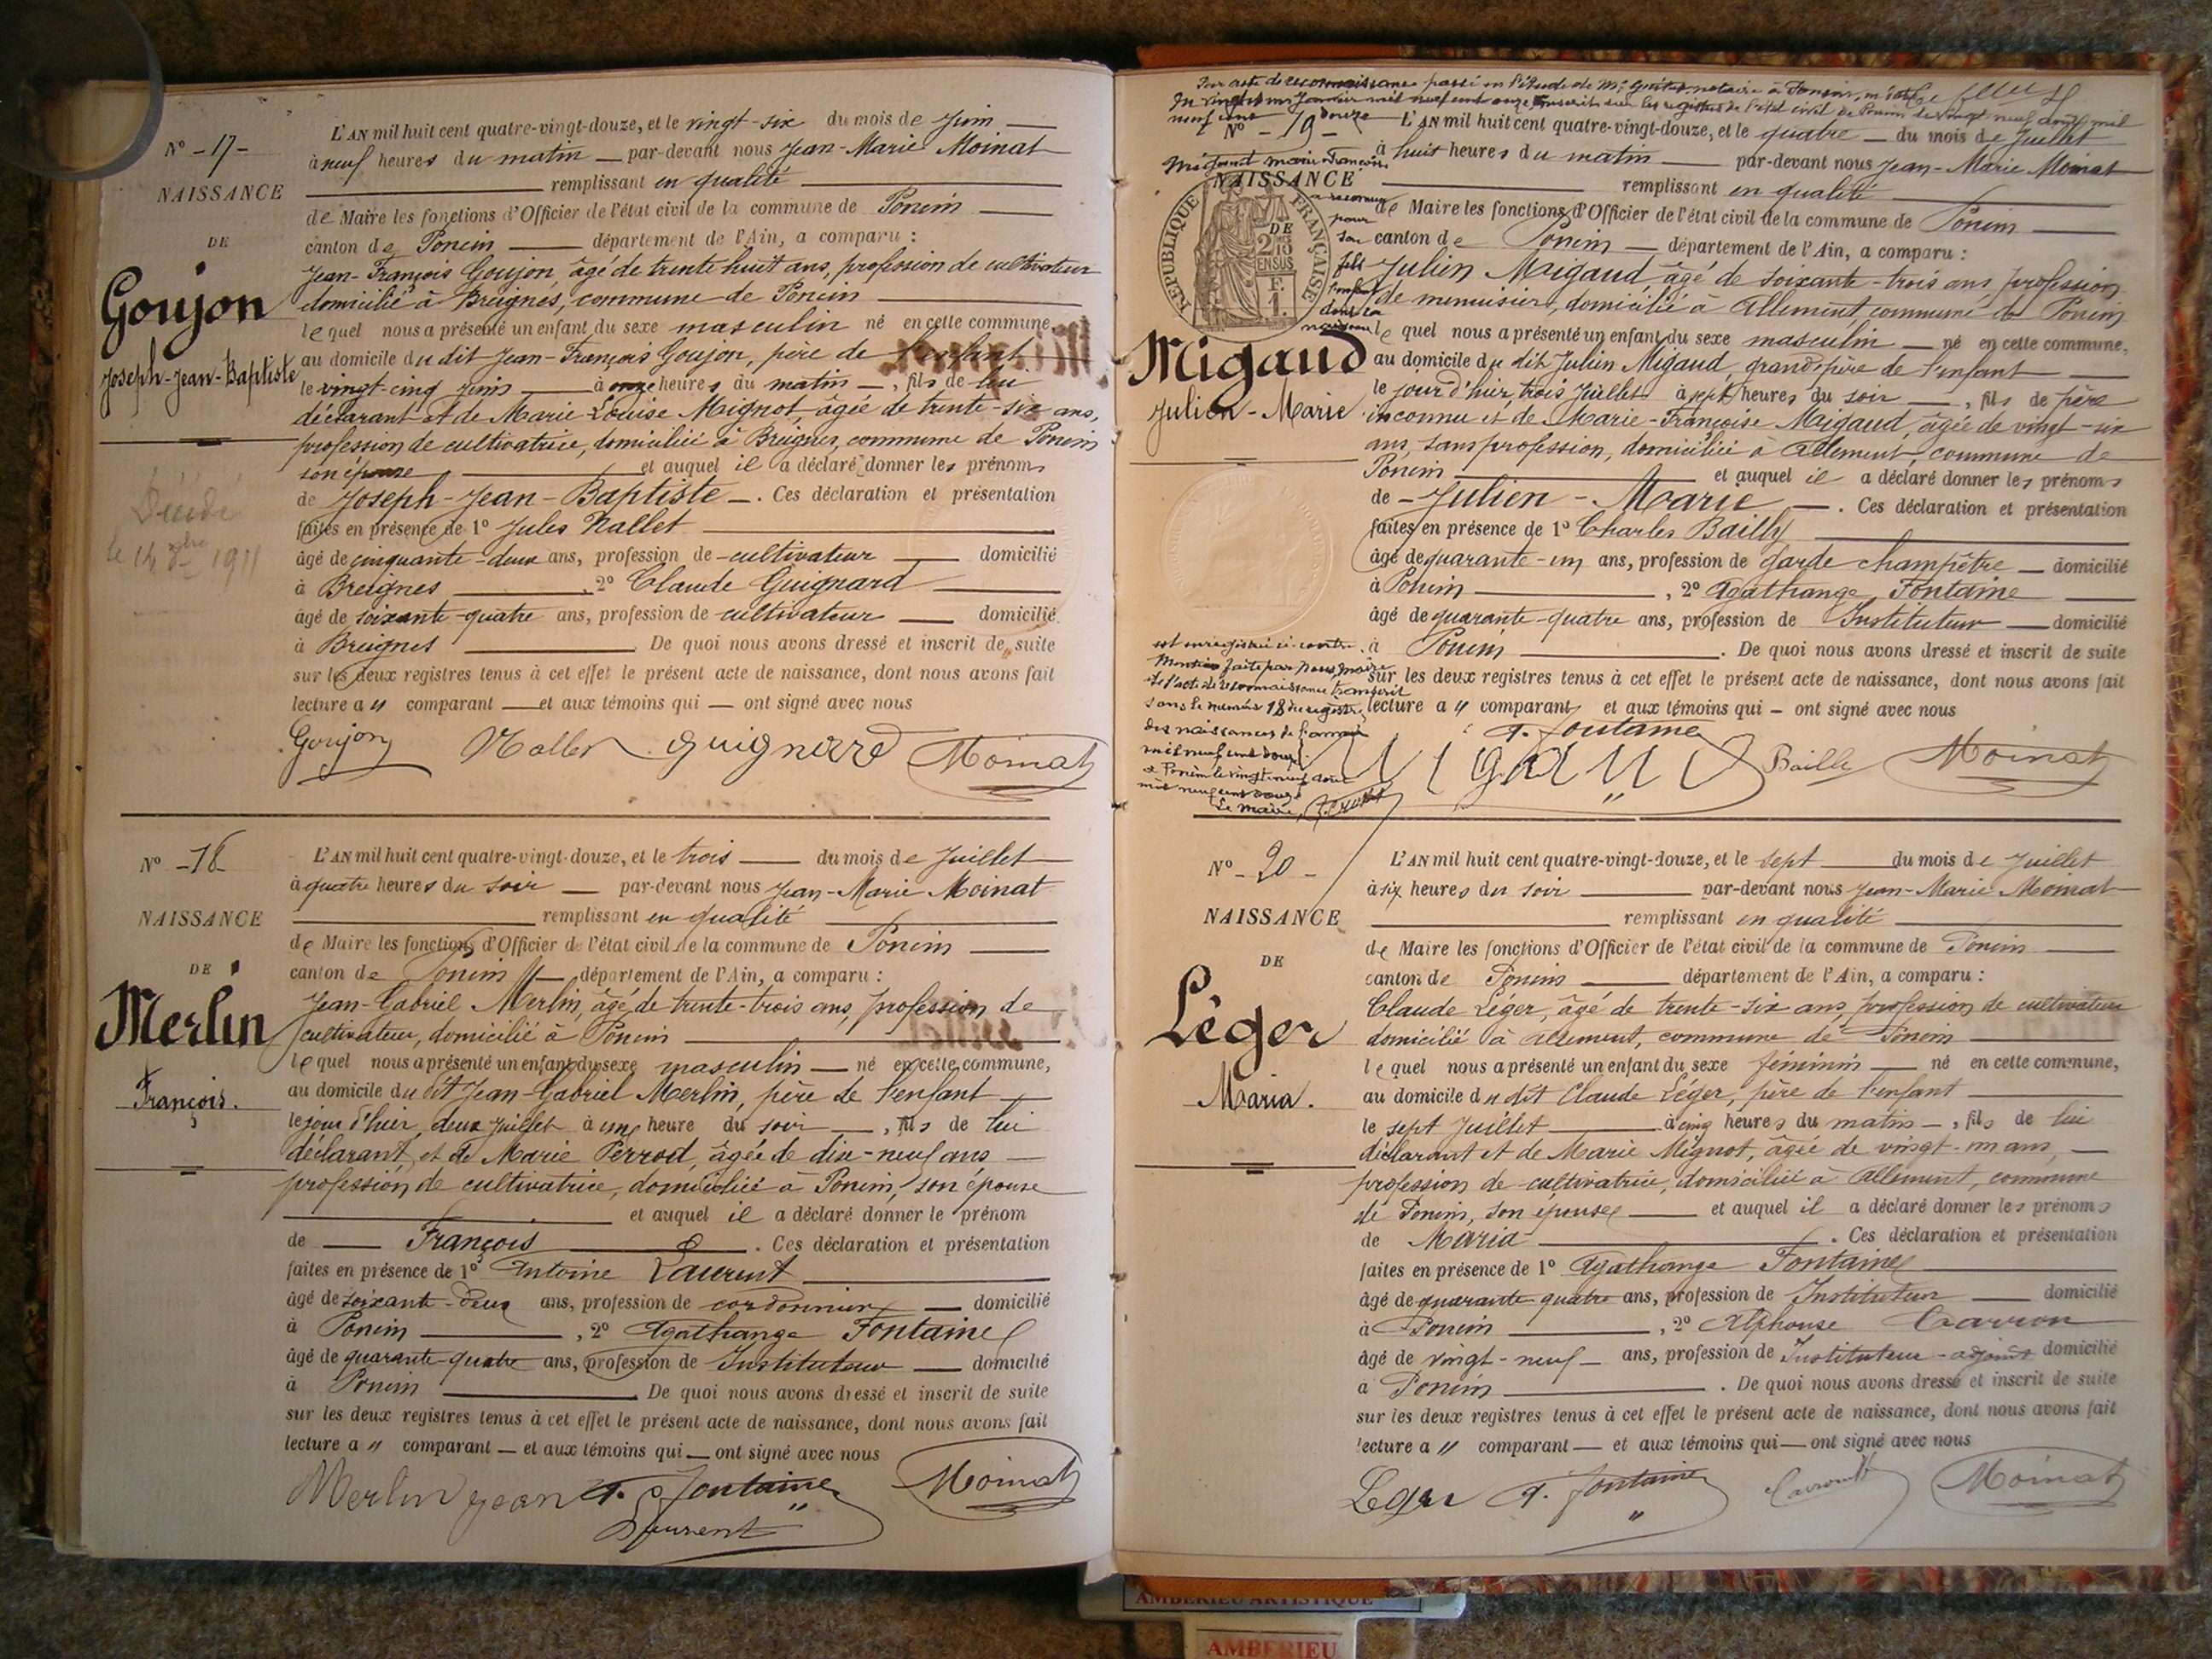 N° - 17 -
NAISSANCE
DE
Goujon
Joseph-Jean-Baptiste
Décédé
le 14 1911
L'AN mil huit cent quatre-vingt-douze, et le vingt-six du mois de Juin
à neuf heures du matin par-devant nous Jean-Marie Moinat
remplissant en qualité
de Maire les fonctions d'Officier de l'état civil de la commune de Poncin
canton de Poncin département de l'Ain, a comparu :
Jean-François Goujon, âgé de trente huit ans, profession de cultivateur
domicilié à Breignes, commune de Poncin
lequel nous a présenté un enfant du sexe masculin né en cette commune,
au domicile du dit Jean-François Goujon, père de l'enfant
le vingt-cinq juin à onze heures du matin, fils de lui
déclarant et de Marie-Louise Mignot, âgée de trente-six ans,
profession de cultivatrice, domiciliée à Breignes, commune de Poncin
son épouse et auquel il a déclaré donner les prénoms
de Joseph-Jean-Baptiste. Ces déclaration et présentation
faites en présence de 1° Jules Nallet
âgé de cinquante-deux ans, profession de cultivateur domicilié
à Breignes, 2° Claude Guignard
âgé de soixante-quatre ans, profession de cultivateur domicilié
à Breignes De quoi nous avons dressé et inscrit de suite
sur les deux registres tenus à cet effet le présent acte de naissance, dont nous avons fait
lecture a " comparant et aux témoins qui ont signé avec nous
Goujon Guignard Moinat
N° - 18
NAISSANCE
DE
Merlin
François.
L'AN mil huit cent quatre-vingt-douze, et le trois du mois de Juillet
à quatre heures du soir par-devant nous Jean-Marie Moinat
remplissant en qualité
de Maire les fonctions d'Officier de l'état civil de la commune de Poncin
canton de Poncin département de l'Ain, a comparu :
Jean-Gabriel Merlin, âgé de trente-trois ans, profession de
cultivateur, domicilié à Poncin
lequel nous a présenté un enfant du sexe masculin né en cette commune,
au domicile du dit Jean-Gabriel Merlin, père de l'enfant
le jour d'hier, deux juillet à une heure du soir, fils de lui
déclarant, et de Marie Perrod, âgée de dix-neuf ans
profession de cultivatrice, domiciliée à Poncin, son épouse
et auquel il a déclaré donner le prénom
de François. Ces déclaration et présentation
faites en présence de 1° Antoine Laurent
âgé de soixante-deux ans, profession de cordonnier domicilié
à Poncin, 2° Agathange Fontaine
âgé de quarante-quatre ans, profession de Instituteur domicilié
à Poncin De quoi nous avons dressé et inscrit de suite
sur les deux registres tenus à cet effet le présent acte de naissance, dont nous avons fait
lecture a " comparant et aux témoins qui ont signé avec nous
Merlin Jean A. Fontaine Moinat
Laurent
Par acte de reconnaissance passé en l'étude de Me notaire à Poncin,
du vingt un Janvier mil neuf cent onze transcrit sur les registres de l'état civil de Poncin le vingt neuf août mil
neuf cent douze
Migaud Marie Françoise
a reconnu
pour
son
fils
l'enfant
dont la
naissance
est enregistrée ci-contre.
Mention faite par Nous, maire
de l'acte de reconnaissance transcrit
sous le numéro 18 du registre
des naissances de l'année
mil neuf cent douze
à Poncin le vingt neuf août
mil neuf cent douze
Le maire,
N° - 19 -
NAISSANCE
DE
RÉPUBLIQUE FRANÇAISE
2/10 EN SUS
F. 1.
Migaud
Julien-Marie
L'AN mil huit cent quatre-vingt-douze, et le quatre du mois de Juillet
à huit heures du matin par-devant nous Jean-Marie Moinat
remplissant en qualité
de Maire les fonctions d'Officier de l'état civil de la commune de Poncin
canton de Poncin département de l'Ain, a comparu :
Julien Migaud, âgé de soixante-trois ans profession
de menuisier, domicilié à Allement, commune de Poncin
lequel nous a présenté un enfant du sexe masculin né en cette commune,
au domicile du dit Julien Migaud, grand-père de l'enfant
le jour d'hier, trois Juillet à sept heures du soir, fils de père
inconnu et de Marie-Françoise Migaud, âgée de vingt-six
ans, sans profession, domiciliée à Allement, commune de
Poncin et auquel il a déclaré donner les prénoms
de Julien-Marie. Ces déclaration et présentation
faites en présence de 1° Charles Bailly
âgé de quarante-un ans, profession de garde champêtre domicilié
à Poncin, 2° Agathange Fontaine
âgé de quarante-quatre ans, profession de Instituteur domicilié
à Poncin. De quoi nous avons dressé et inscrit de suite
sur les deux registres tenus à cet effet le présent acte de naissance, dont nous avons fait
lecture a " comparant et aux témoins qui ont signé avec nous
A. Fontaine
Migaud Bailly Moinat
N° - 20 -
NAISSANCE
DE
Léger
Maria.
L'AN mil huit cent quatre-vingt-douze, et le sept du mois de Juillet
à six heures du soir par-devant nous Jean-Marie Moinat
remplissant en qualité
de Maire les fonctions d'Officier de l'état civil de la commune de Poncin
canton de Poncin département de l'Ain, a comparu :
Claude Léger, âgé de trente-six ans, profession de cultivateur
domicilié à Allement, commune de Poncin
lequel nous a présenté un enfant du sexe féminin né en cette commune,
au domicile du dit Claude Léger, père de l'enfant
le sept Juillet à cinq heures du matin, fils de lui
déclarant et de Marie Mignot, âgée de vingt-un ans,
profession de cultivatrice, domiciliée à Allement, commune
de Poncin, son épouse et auquel il a déclaré donner les prénoms
de Maria. Ces déclaration et présentation
faites en présence de 1° Agathange Fontaine
âgé de quarante-quatre ans, profession de Instituteur domicilié
à Poncin, 2° Alphonse Carron
âgé de vingt-neuf ans, profession de Instituteur-adjoint domicilié
à Poncin. De quoi nous avons dressé et inscrit de suite
sur les deux registres tenus à cet effet le présent acte de naissance, dont nous avons fait
lecture a " comparant et aux témoins qui ont signé avec nous
Léger A. Fontaine Moinat
AMBERIEU ARTISTIQUE
AMBERIEU